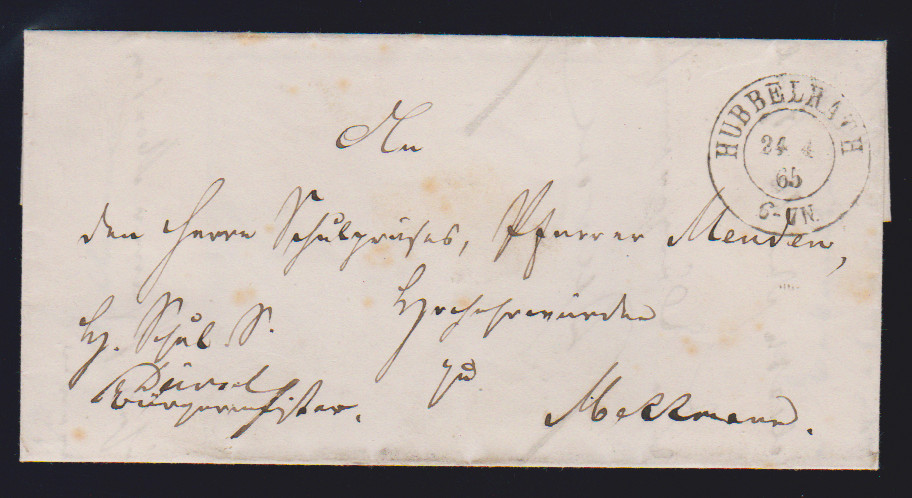 An
den Herrn Schulpräses, Pfarrer Menden,
Hochehrwürden
H. Schul. S.
zu
Bürgermeister.
Mettmann.
HUBBELRATH
24 4
65
6-7N.